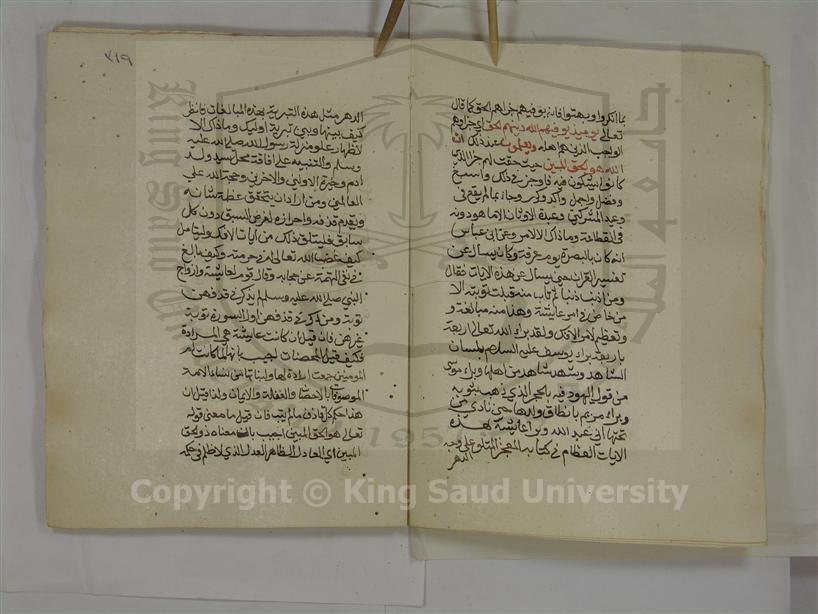 بما انكروا وبهتوا فانه يوفيهم جزاهم الحق كما قال
تعالى يوميذ يوفيهم الله دينهم الحق اي جزاوهم
الواجب الذي هم اهله ويعلمون عند ذلك ان
الله هو الحق المبين حيث حقت لهم جزا الذي
كانوا يشكون فيه فاوجز في ذلك واشبع
وفصل واجمل واكد وكرر وجاء بما لم يقع في
وعيد المشركين وعبدة الاوثان الا ما هو دونه
في الفظاعة وما ذاك الا لامر وعن ابن عباس
انه كان بالبصرة يوم عرفة وكان يسال عن
تفسير القران حتى يسال عن هذه الايات فقال
ومن اذنب ذنبا ثم تاب منه قبلت توبته الا
من خاض في امر عايشة وهذا منه مبالغة و
وتعظيم لامر الافك ولقد برا الله تعالى اربعة
باربعة برا يوسف عليه السلام بلسان
الشاهد وشهد شاهد من اهلها وبرا موسى
من قول اليهود فيه بالحجر الذي ذهب بثوبه
وبراء مريم بانطاق ولدها حتى نادى من
تحتها اني عبد الله وبرا عايشة بهذه
الايات العظام في كتابه المعجز المتلو على وجه
الدهر
٣١٩
الدهر مثل هذه التبرية بهذه المبالغات فانظر
كيف بينها وبين تبرية اوليك وما ذاك الا
لاظهار علو منزلة رسول الله صلى الله عليه
وسلم والتنبيه على انافة محل سيد ولد
ادم وخيرة الاولين والاخرين وحجة الله على
العالمين ومن اراد ان يتحقق عظمة شانه
وتقدم قدمه واحرازه لقرض السبق دون كل
سابق فليتلق ذلك من ايات الافك وليتامل
كيف غضب الله تعالى له في حرمته وكيف بالغ
في نفي التهمة عن حجابه وقال قوم لعايشة وازواج
النبي صلى الله عليه وسلم لم يذكر في قذفهن
توبة ومن ذكر في قذفهن اول السورة توبة
غيرهن فان قيل ان كانت عايشة هي المرادة
فكيف قيل المحصنات اجيب بانها لما كانت ام
المومنين جمعت ارادة لها ولبناتها من نساء الامة
الموصوفات بالاحصان والغفلة والايمان ولذا قيل ان
هذا حكم كل قاذف ما لم يتب فان قيل ما معنى قوله
تعالى هو الحق المبين اجيب بان معناه ذو الحق
المبين اي العادل الظاهر العدل الذي لا ظلم في حكمه
Copyright © King Saud University